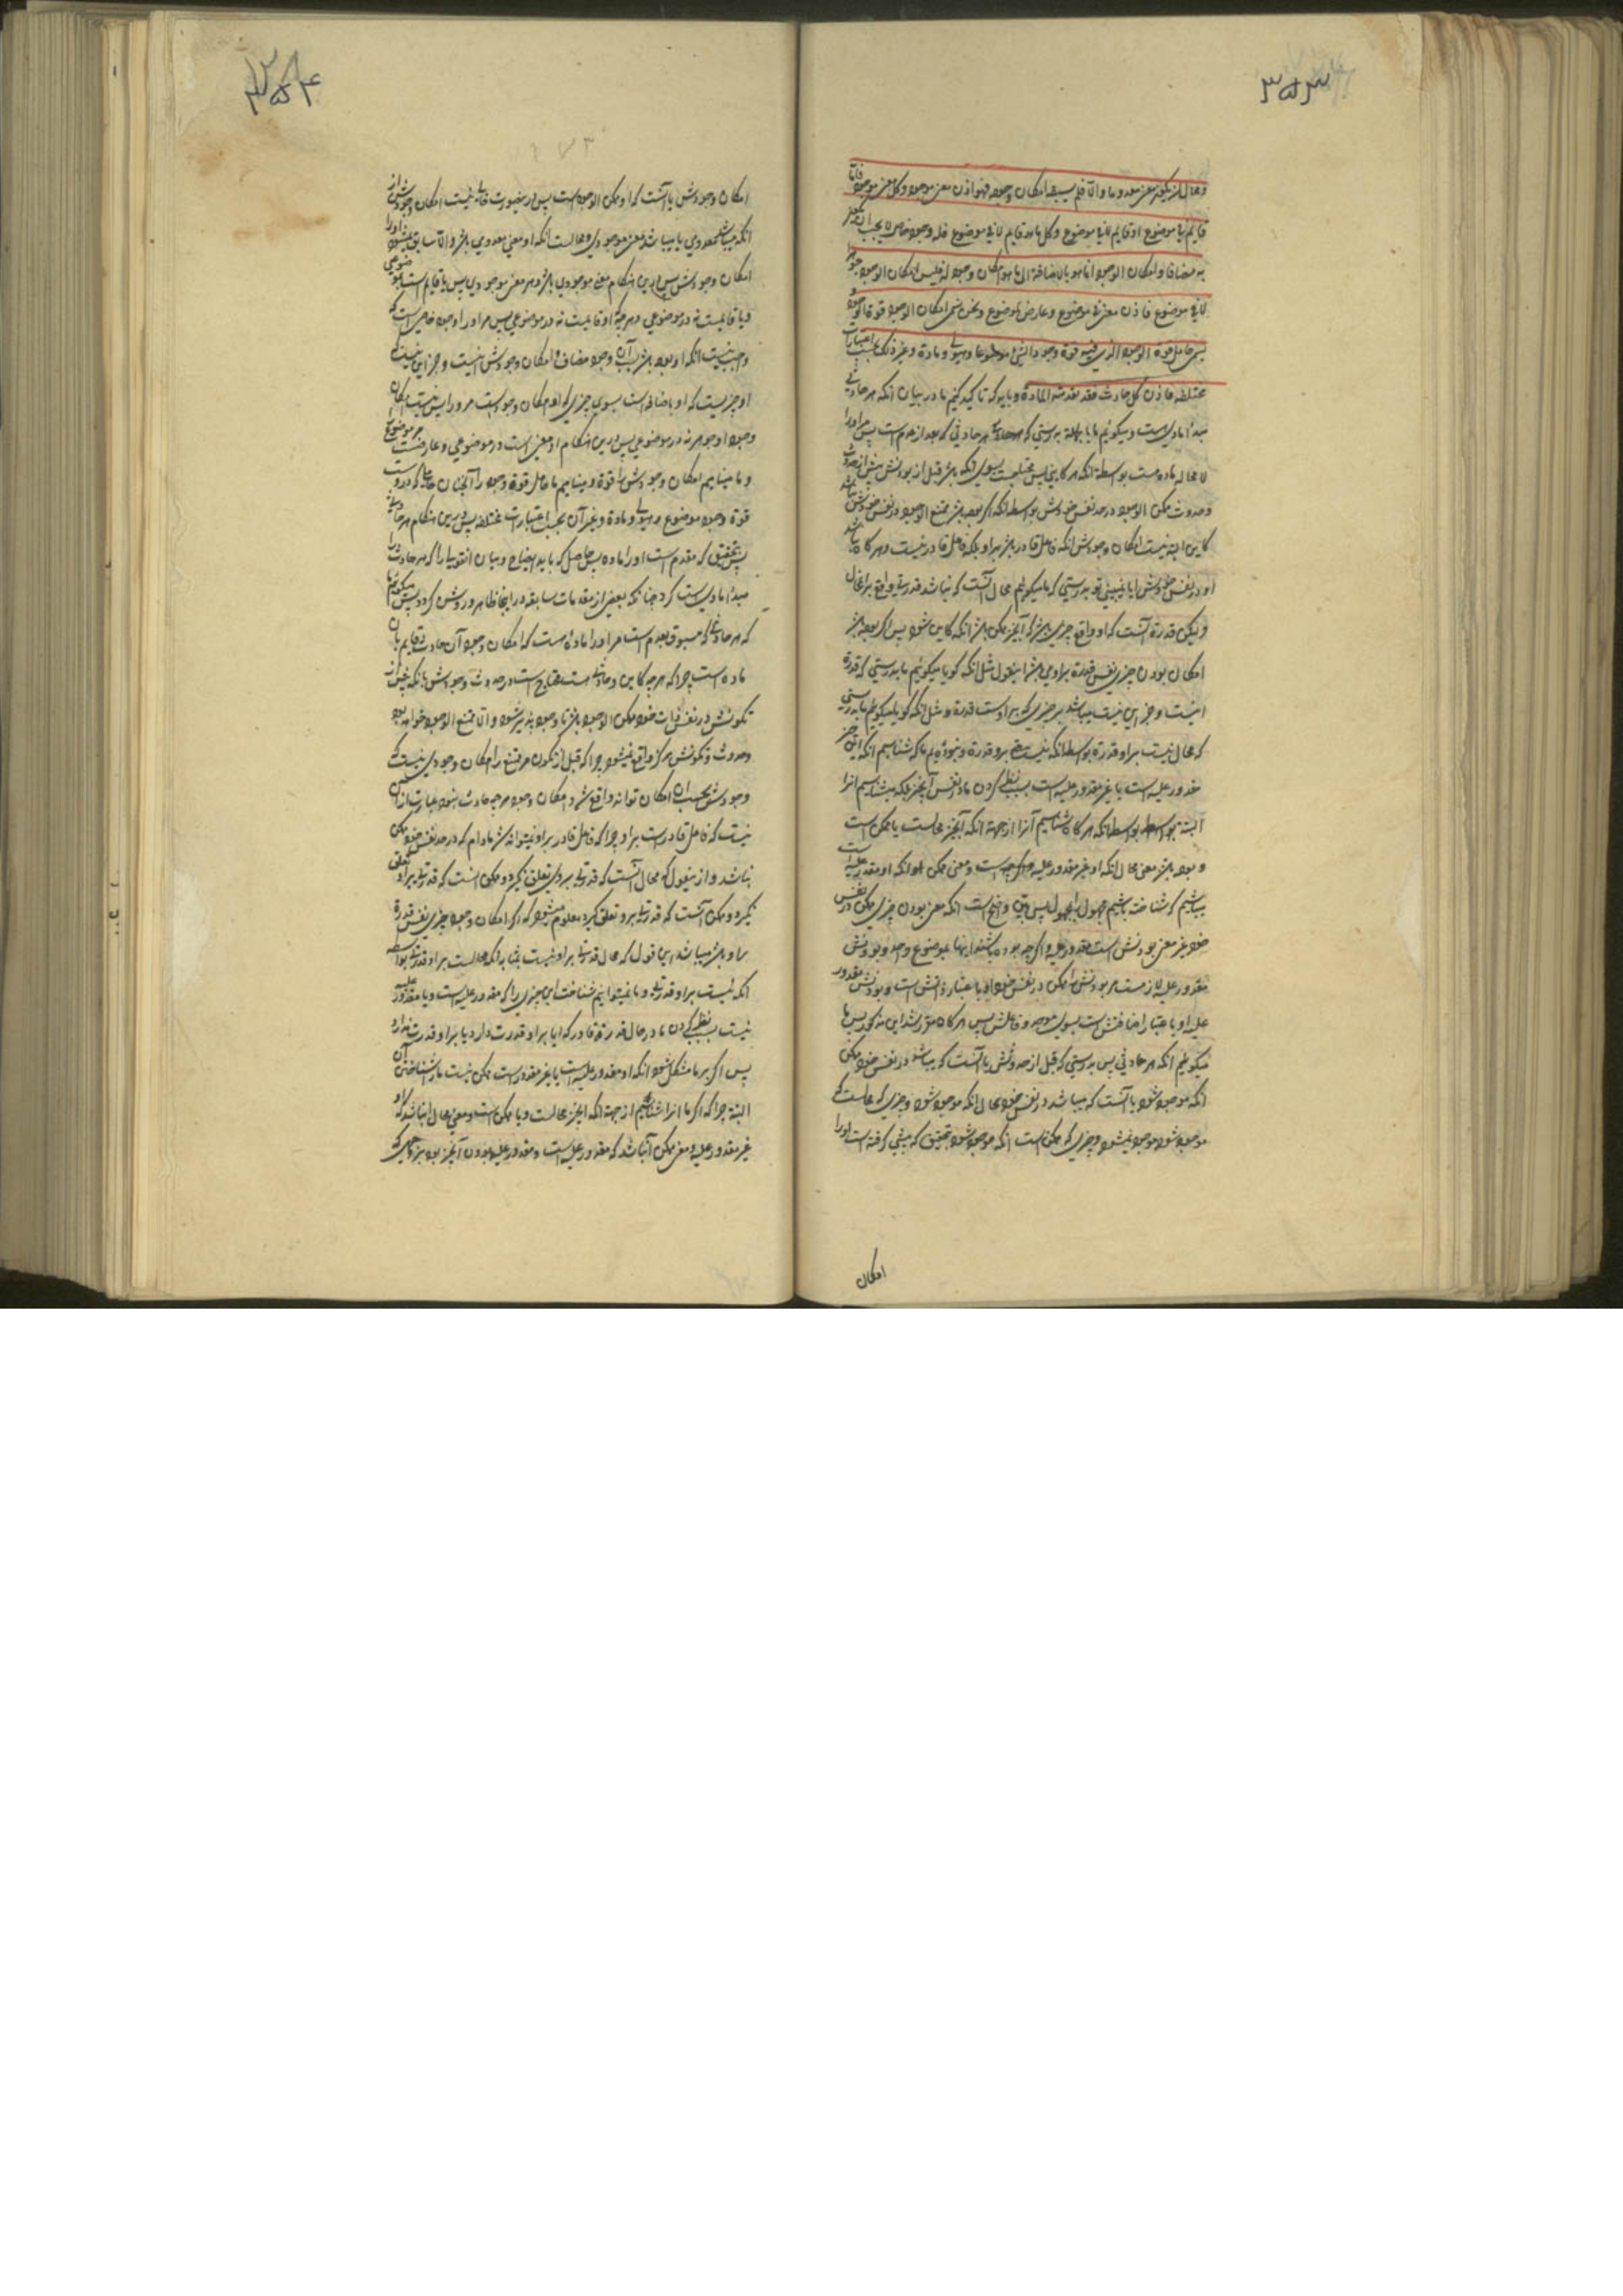 ۳۵۳
و محال ان یکون معنی معدوما و الا فلم یسبقه امکان وجوده فهو اذن معنی موجود و کل معنی موجود فاما
قایم فی موضوع او قایم لا فی موضوع و کل ما هو قایم لا فی موضوع فله وجود خاص لا یجب ان یکون
به مضافا و امکان الوجود انما هو بالاضافة الی ما هو امکان وجود له فلیس امکان الوجود جوهرا
لا فی موضوع فاذن معنی فی موضوع و عارض لموضوع و نحن نسمی امکان الوجود قوة الوجود و
نسمی حامل قوة الوجود الذی فیه قوة وجود الشیء موضوعا و هیولی و مادة و غیر ذلک بحسب اعتبارات
مختلفة فاذن کل حادث فقد تقدمته المادة و باید که تاکید کنیم ما در بیان آنکه هر حادثی
مبدأ مادی است و میکوئیم ما بالجمله بدرستی که هر حادثی که بعد از عدم است پس مر او را
لا محاله ماده است بواسطه آنکه هر کاینی پس محتاجست بسوی آنکه باشد قبل از بودنش پیش از حدوث
و حدوث ممکن الوجود در حد نفس خودش بواسطه آنکه اگر بوده باشد ممتنع الوجود در نفس خودش نباشد
کاین البته نیست امکان وجودش آنکه فاعل قادر باشد بر او بلکه فاعل قادر نیست و هر کاه نباشد
او در نفس خودش ایا نمی بینی تو بدرستی که ما میکوئیم محال آنست که نباشد قدرت واقع بر محال
و لیکن قدرة آنست که او واقع بر چیزی باشد که آنچیز ممکن باشد آنکه کاین شود پس اگر بوده باشد
امکان بودن چیزی نفس قدرة بر او می باشد اینقول مثل آنکه کویا میکوئیم ما بدرستی که قدرة
اینست و جز این نیست میباشد بر چیزی که بر اوست قدرة و مثل آنکه کویا میکوئیم ما بدرستی
که محال نیست بر او قدرة بواسطه آنکه نیست بر او قدرة و نبوده ایم ما که شناسیم آنکه این چیز
مقدور علیه است یا غیر مقدور علیه است بسبب نظر کردن ما در نفس آنچیز بلکه میشناسیم آنرا
البته بواسطه آنکه هر کاه شناسیم آنرا از جهة آنکه آنچیز محالست یا ممکن است
و بوده باشد معنی محال آنکه او غیر مقدور علیه است و معنی ممکن آنکه او مقدور علیه است
میباشیم که شناخته باشیم مجهول را بمجهول پس بین و واضح است آنکه معنی بودن چیزی ممکن در نفس
خود غیر معنی بودنش است مقدور علیه و اگر چه بوده باشند اینها بموضوع واحد و بودنش
مقدور علیه لازمست مر بودنش را ممکن در نفس خود او باعتبار ذاتش است و بودنش مقدور
علیه او باعتبار اضافتش است بسوی موجد و فاعلش پس هر کاه مقرر شد این مذکور پس ما
میکوئیم آنکه هر حادثی پس بدرستی که قبل از حدوثش یا آنست که میباشد در نفس خود ممکن
آنکه موجود شود یا آنست که میباشد در نفس خود محال آنکه موجود شود و چیزی که محالست که
موجود شود موجود نمیشود و چیزی که ممکن است آنکه موجود شود بتحقیق که پیشی کرفته است او را
امکان
۳۵۴
۲۷۳
امکان وجودش یا آنست که او ممکن الوجود است پس در اینصورت خالی نیست امکان وجودش از
آنکه میباشد معدومی یا میباشد معنی موجودی و محالست آنکه او معنی معدومی باشد والا سابق نمیشود او را
امکان وجودش پس در این هنکام معنی موجودی باشد و هر معنی موجودی پس یا قایم است بموضوعی
و یا قایمست نه در موضوعی و هر چه او قایمست نه در موضوعی پس مر او را وجود خاصی است که
واجب نیست آنکه او بوده باشد بسبب آن وجود مضاف و امکان وجودش نیست و جز این نیست که
او چیزیست که او باضافه است بسوی چیزی که او امکان وجود است مر او را پس نیست امکان
وجود او جوهر نه در موضوعی پس در این هنکام او معنی است در موضوعی و عارضست مر موضوع را
و ما مینامیم امکان وجودش را قوة وجود و مینامیم ما حامل قوة وجود را آنچنان حاملی که در وست
قوة وجود موضوع و هیولی و ماده و غیر آن بحسب اعتبارات مختلفه پس در این هنکام هر حادثی
پس بتحقیق که مقدم است او را ماده حاصل که باید ایضاح و بیان اینقول را که هر حادث را
مبدأ مادی است کرد چنانکه بعضی از مقدمات سابقه در اینجا ظاهر و روشن کردد پس میکوئیم ما
که هر حادثی که مسبوق بعدم است مر او را ماده است که امکان وجود آن حادث قایم بآن
ماده است چرا که هر چه کاین و حادث است محتاج است در حدوث وجودش بآنکه پیش از
تکونش در نفس ذات خود ممکن الوجود باشد تا وجود پذیر شود و الا ممتنع الوجود خواهد بود
و حدوث و تکونش هرکز واقع نمیشود چرا که قبل از تکون مر ممتنع را امکان وجودی نیست که
وجودش بحسب آن امکان تواند واقع شد و امکان وجود هر چه حادث بشود عبارت از آن
نیست که فاعل قادر است بر او چرا که فاعل قادر بر او نمیتواند شد مادام که در حد نفس خود ممکن
نباشد و از اینقول که محال آنست که قدرت بر وی تعلق نکیرد و ممکن آنست که قدرت بر او تعلق
کیرد و ممکن آنست که قدرت بر او تعلق کیرد معلوم میشود که اگر امکان وجود چیزی نفس قدرة
بر او باشد میباشد این قول که محال قدرت بر او نیست بمثابه آنکه محالست بر او قدرت بواسطه
آنکه نیست بر او قدرت و ما نمیتوانیم شناخت این چیزی را که مقدور علیه است و یا مقدور علیه
نیست بسبب نظر کردن ما در حال قدرة قادر که ایا بر او قدرت دارد یا بر او قدرت ندارد
پس اگر بر ما مشکل شود آنکه او مقدور علیه است یا غیر مقدور است ممکن نیست ما را شناختن آن
البته چرا که اگر ما آنرا شناسیم از جهة آنکه آنچیز محالست و یا ممکن است و معنی محال این باشد که او
غیر مقدور علیه و معنی ممکن آن باشد که مقدور علیه است و مقدور علیه بودن آنچیز بوده